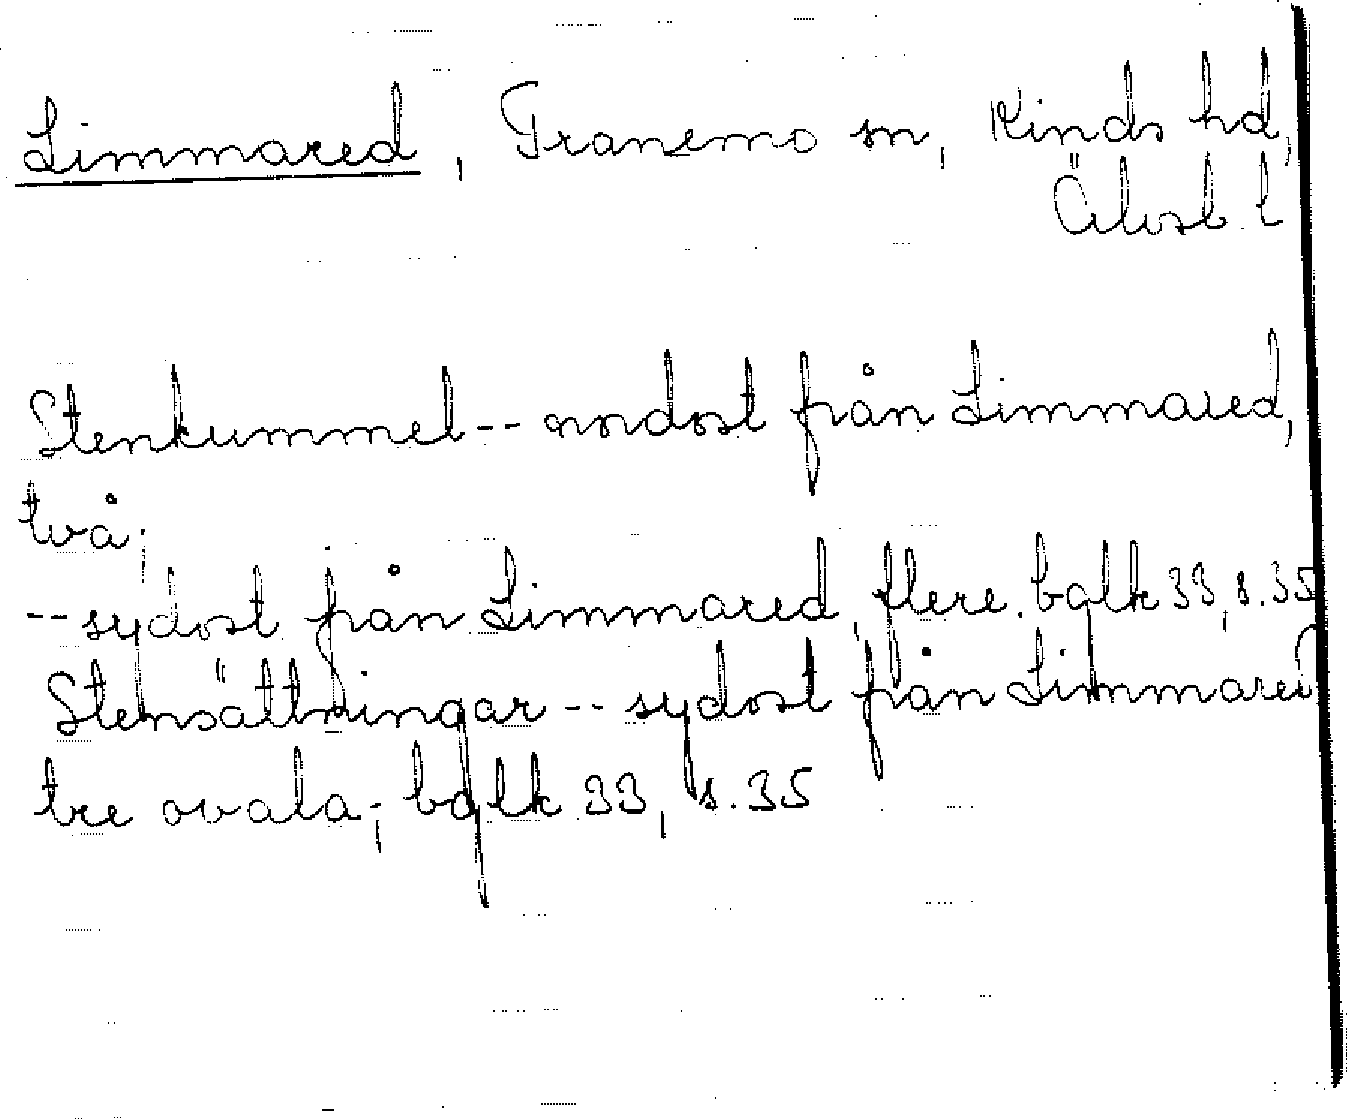 Limmared, Tranemo sn, Kinds hd,
Älvsb. l
Stenkummel -- nordost från Limmared,
två;
-- sydost från Limmared, flere. balk 33, s. 35
Stensättningar -- sydost från Limmared
tre ovala; balk 33, s. 35